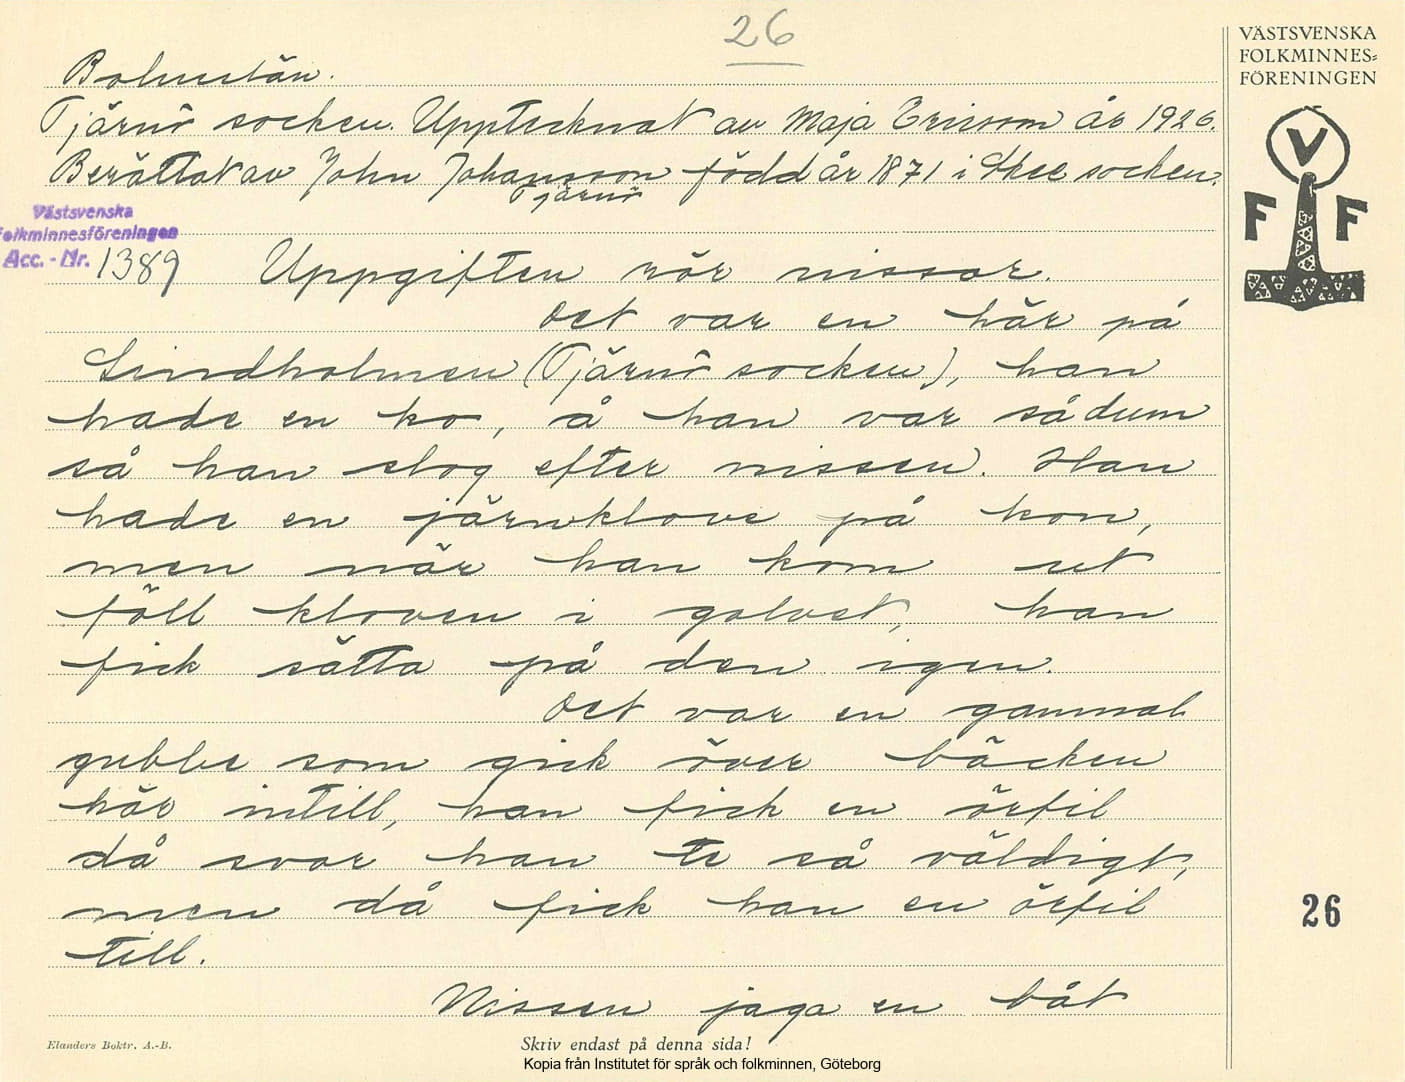 26
VÄSTSVENSKA
FOLKMINNES=
FÖRENINGEN
Bohuslän.
Tjärnö socken. Upptecknat av Maja Ericson år 1926.
Berättat av John Johansson född år 1871 i Skee socken.
Tjärnö
Västsvenska
Folkminnesföreningen
Acc. - Nr. 1389
Uppgiften rör nissar.
Det var en här på
Lindholmen (Tjärnö socken), han
hade en ko, å han var så dum
så han slog efter nissen. Han
hade en järnklove på kon,
men när han kom ut
föll kloven i golvet, han
fick sätta på den igen.
Det var en gammal
gubbe som gick över bäcken
här intill, han fick en örfil
då svor han te så väldigt,
men då fick han en örfil
till.
Nissen jaga en båt
V
F F
26
Elanders Boktr. A.-B.
Skriv endast på denna sida!
Kopia från Institutet för språk och folkminnen, Göteborg